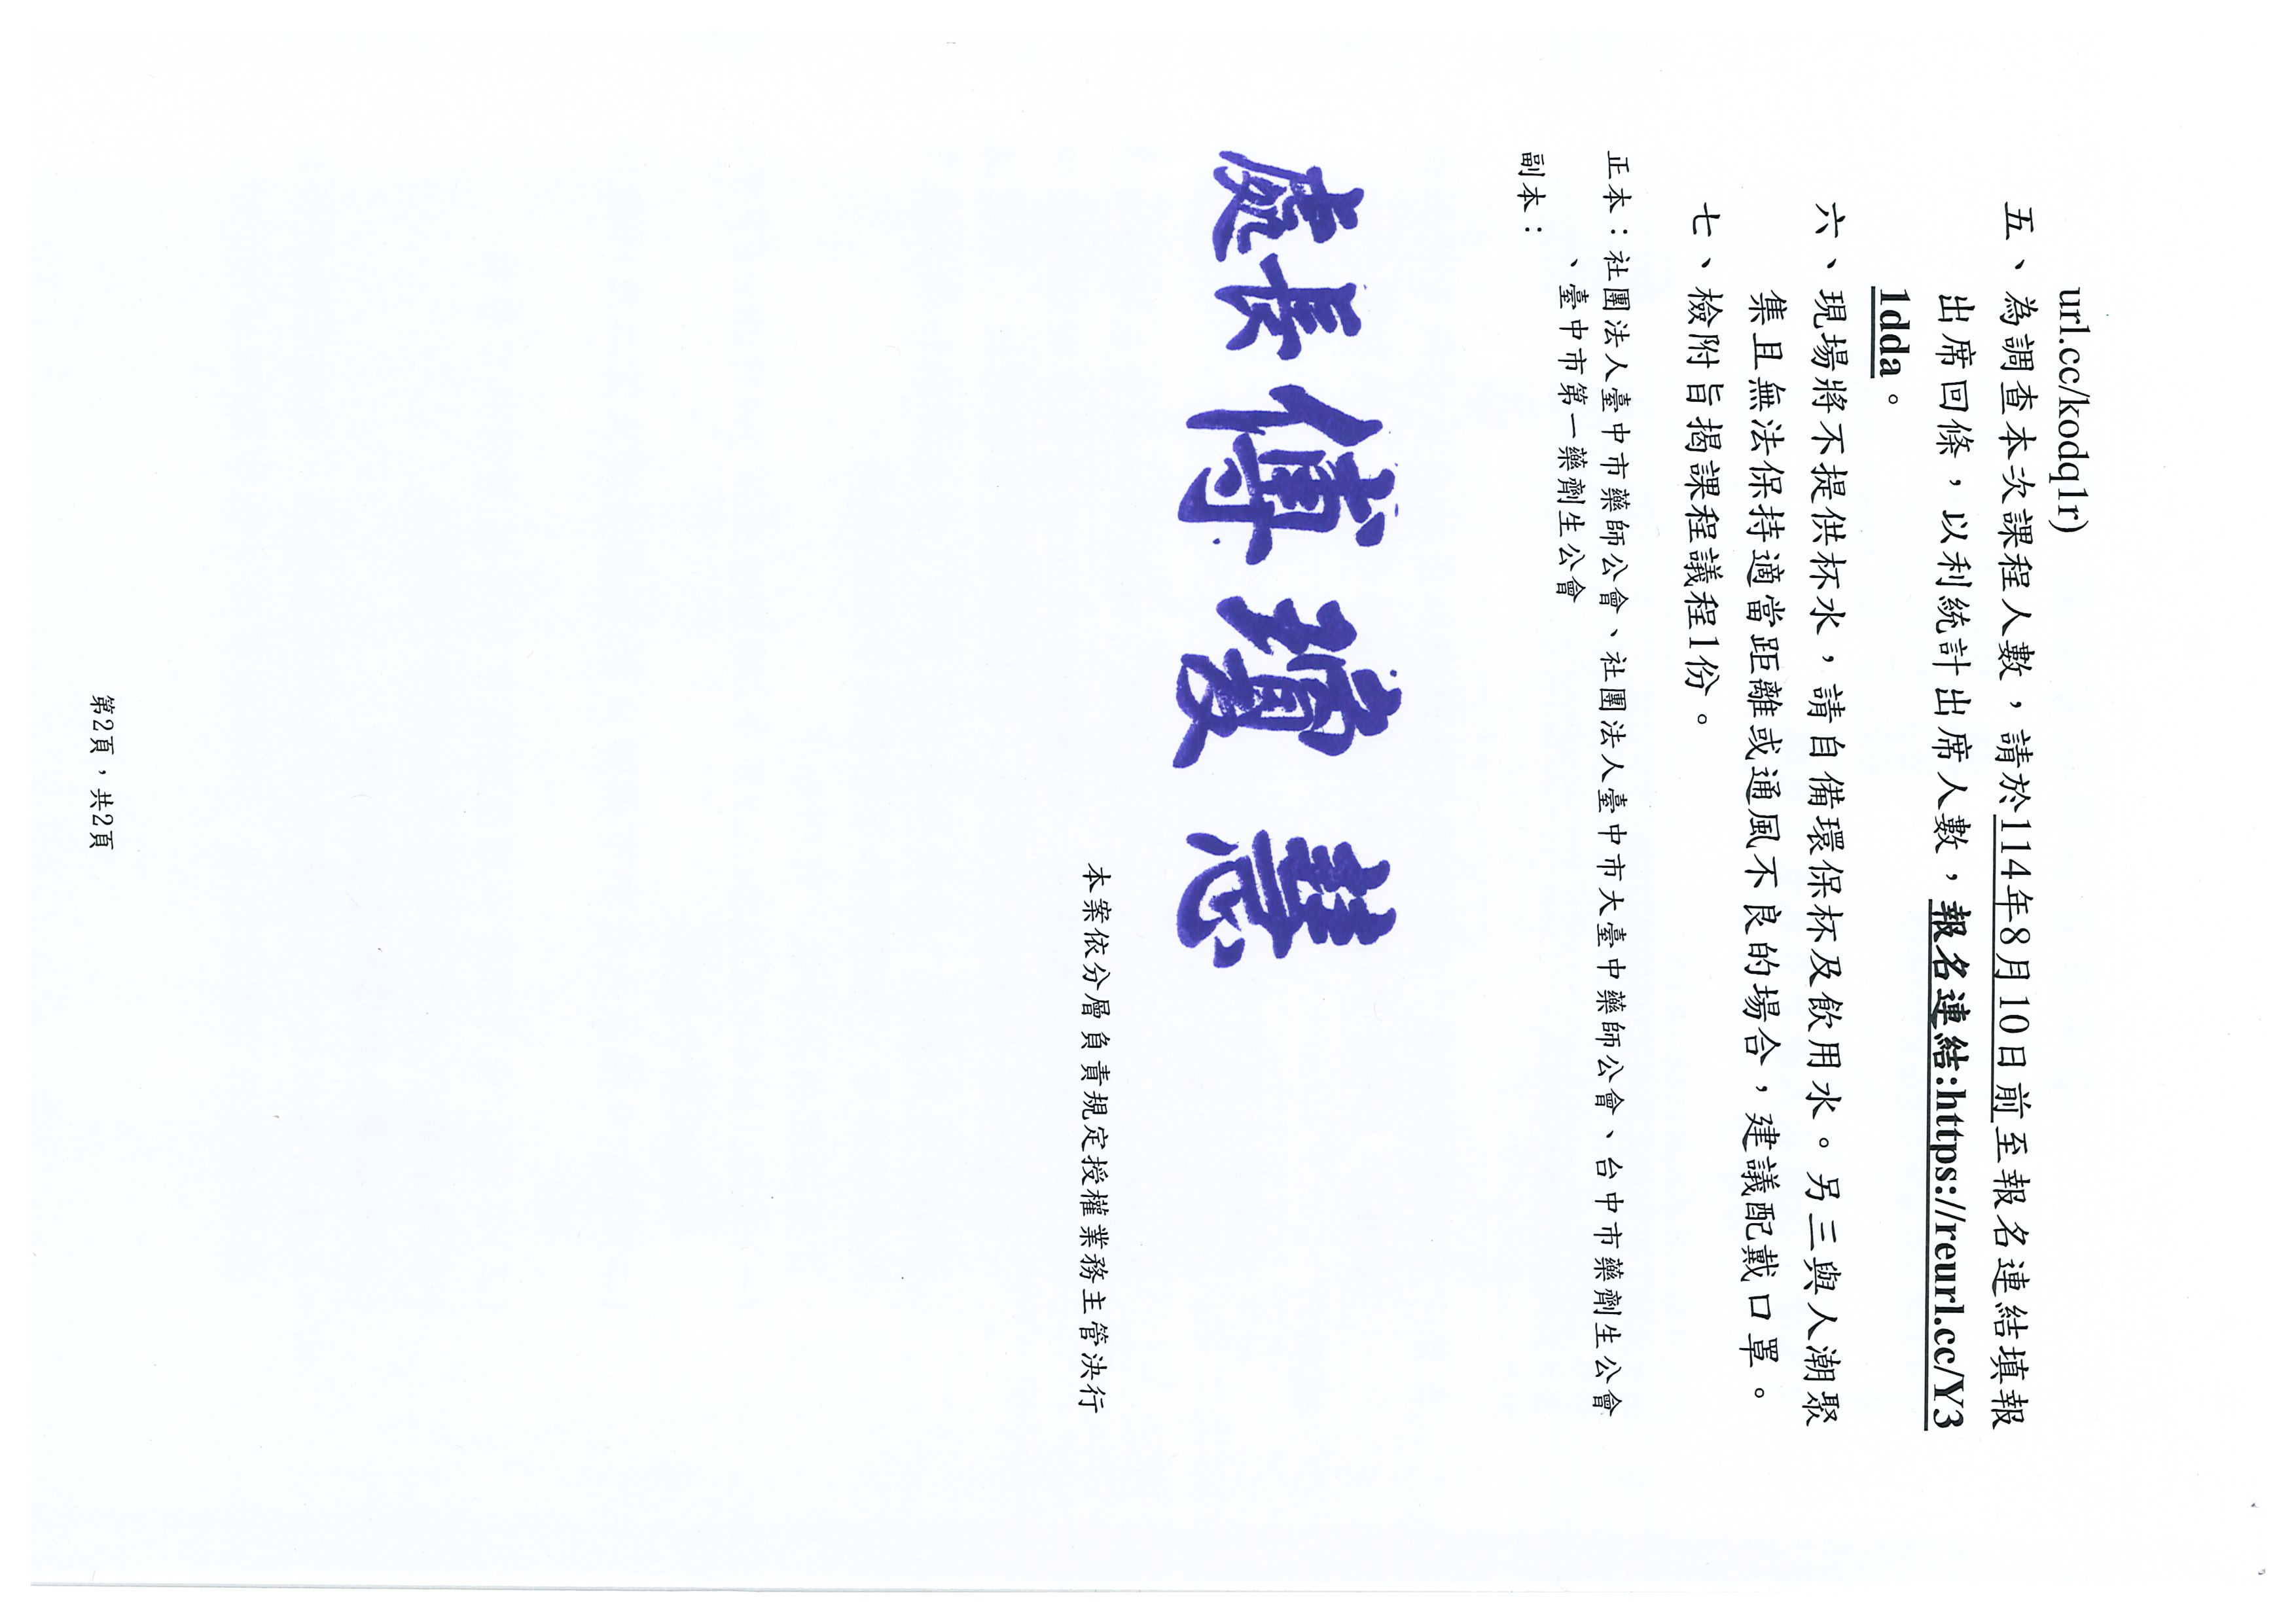 url.cc/kodq1r)
五、為調查本次課程人數，請於114年8月10日前至報名連結填報
出席回條，以利統計出席人數，報名連結:https://reurl.cc/Y3
1dda。
六、現場將不提供杯水，請自備環保杯及飲用水。另三與人潮聚
集且無法保持適當距離或通風不良的場合，建議配戴口罩。
七、檢附旨揭課程議程1份。
正本：社團法人臺中市藥師公會、社團法人臺中市大臺中藥師公會、台中市藥劑生公會
、臺中市第一藥劑生公會
副本：
處長傅瓊慧
本案依分層負責規定授權業務主管決行
第2頁，共2頁